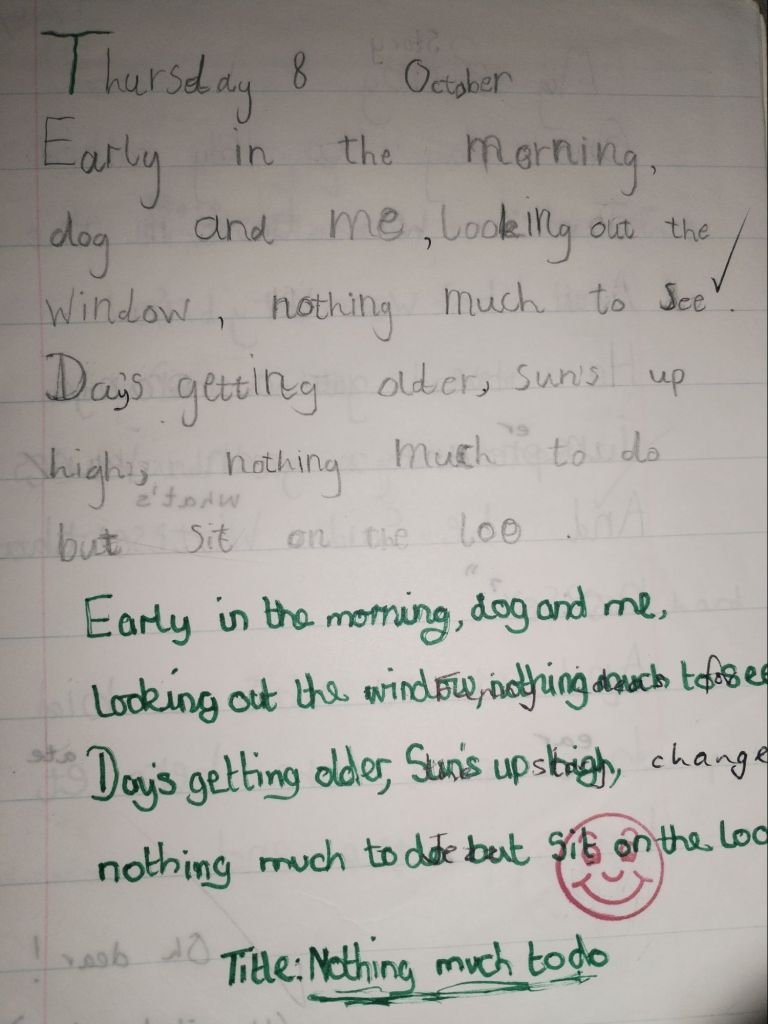 Thursday 8 October
Early in the morning,
dog and me, looking out the
window, nothing much to see.
Day's getting older, sun's up
high, nothing much to do
but sit on the loo.
Early in the morning, dog and me,
Looking out the window, nothing much to see
Day's getting older, Sun's up high, change
nothing much to do but sit on the loo
Title: Nothing much to do